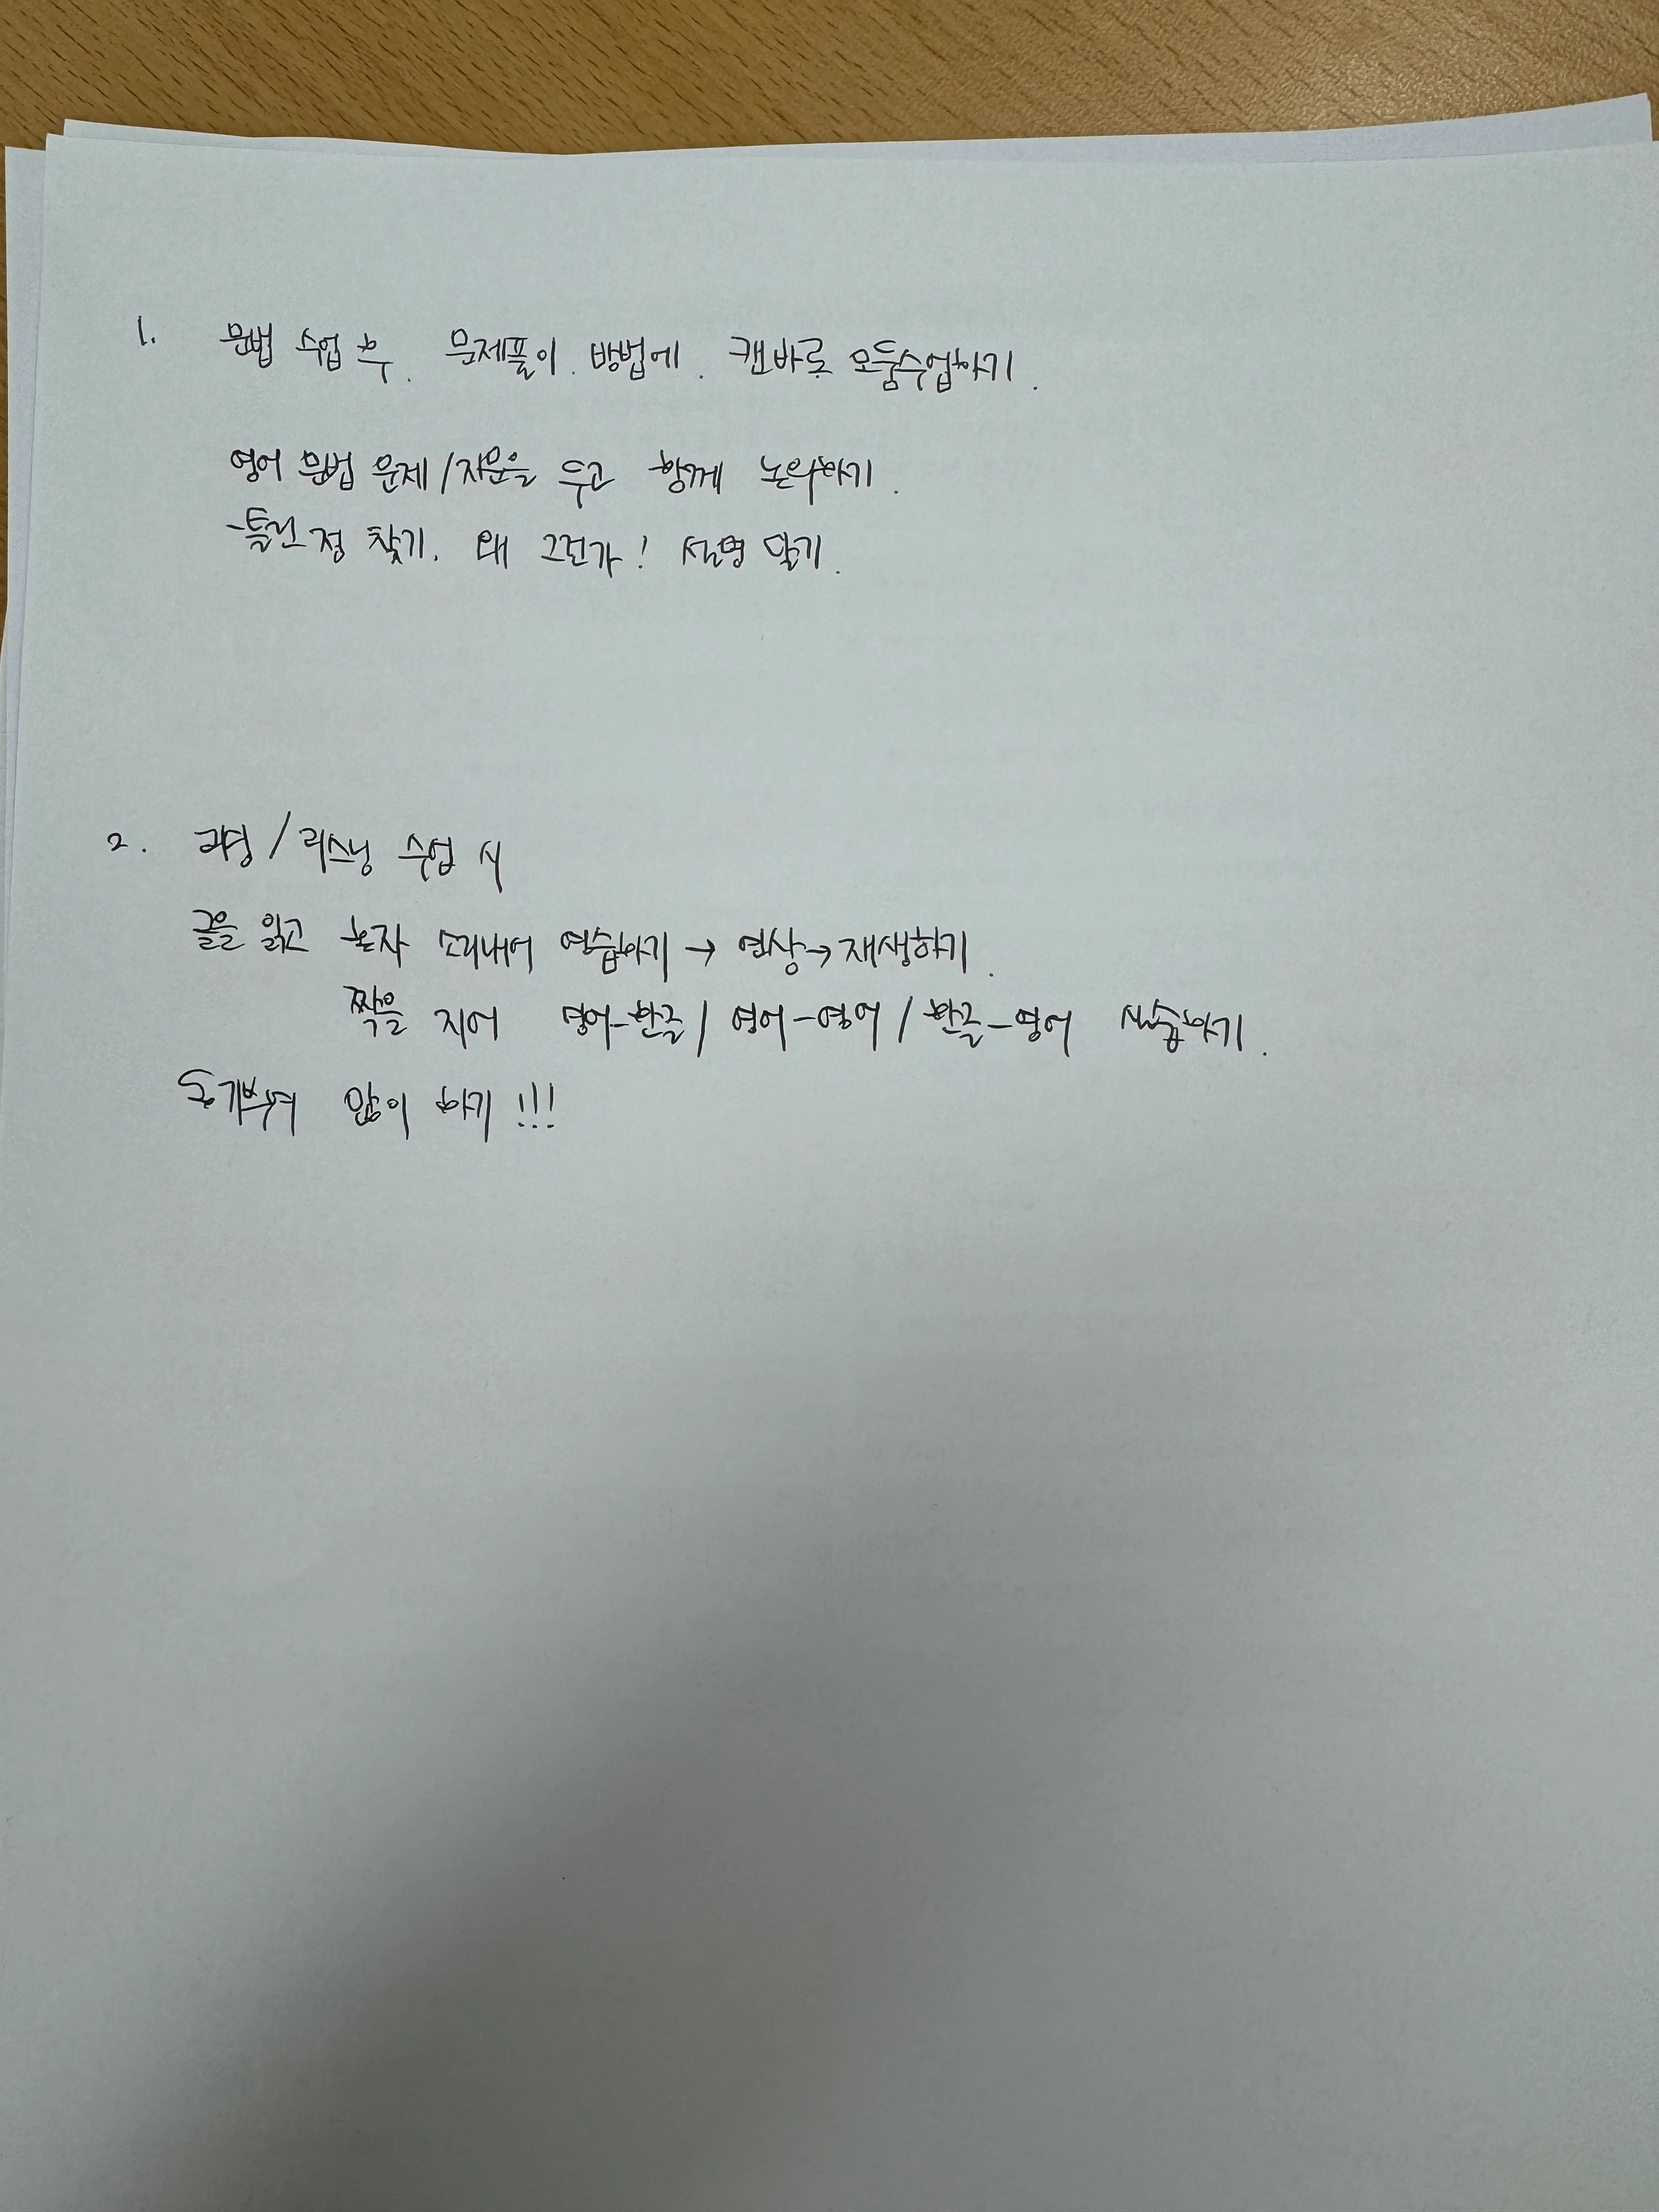 1. 문법 수업 후. 문제풀이. 방법에. 캔바로 모둠수업하기.
영어 문법 문제/지문을 두고 함께 논의하기.
-틀린 점 찾기. 왜 그런가! 설명 달기.
2. 리딩/리스닝 수업 시
글을 읽고 혼자 소리내어 연습하기 → 영상 → 재생하기.
짝을 지어 영어-한글/ 영어-영어/ 한글-영어 실습하기.
동기부여 많이 하기!!!